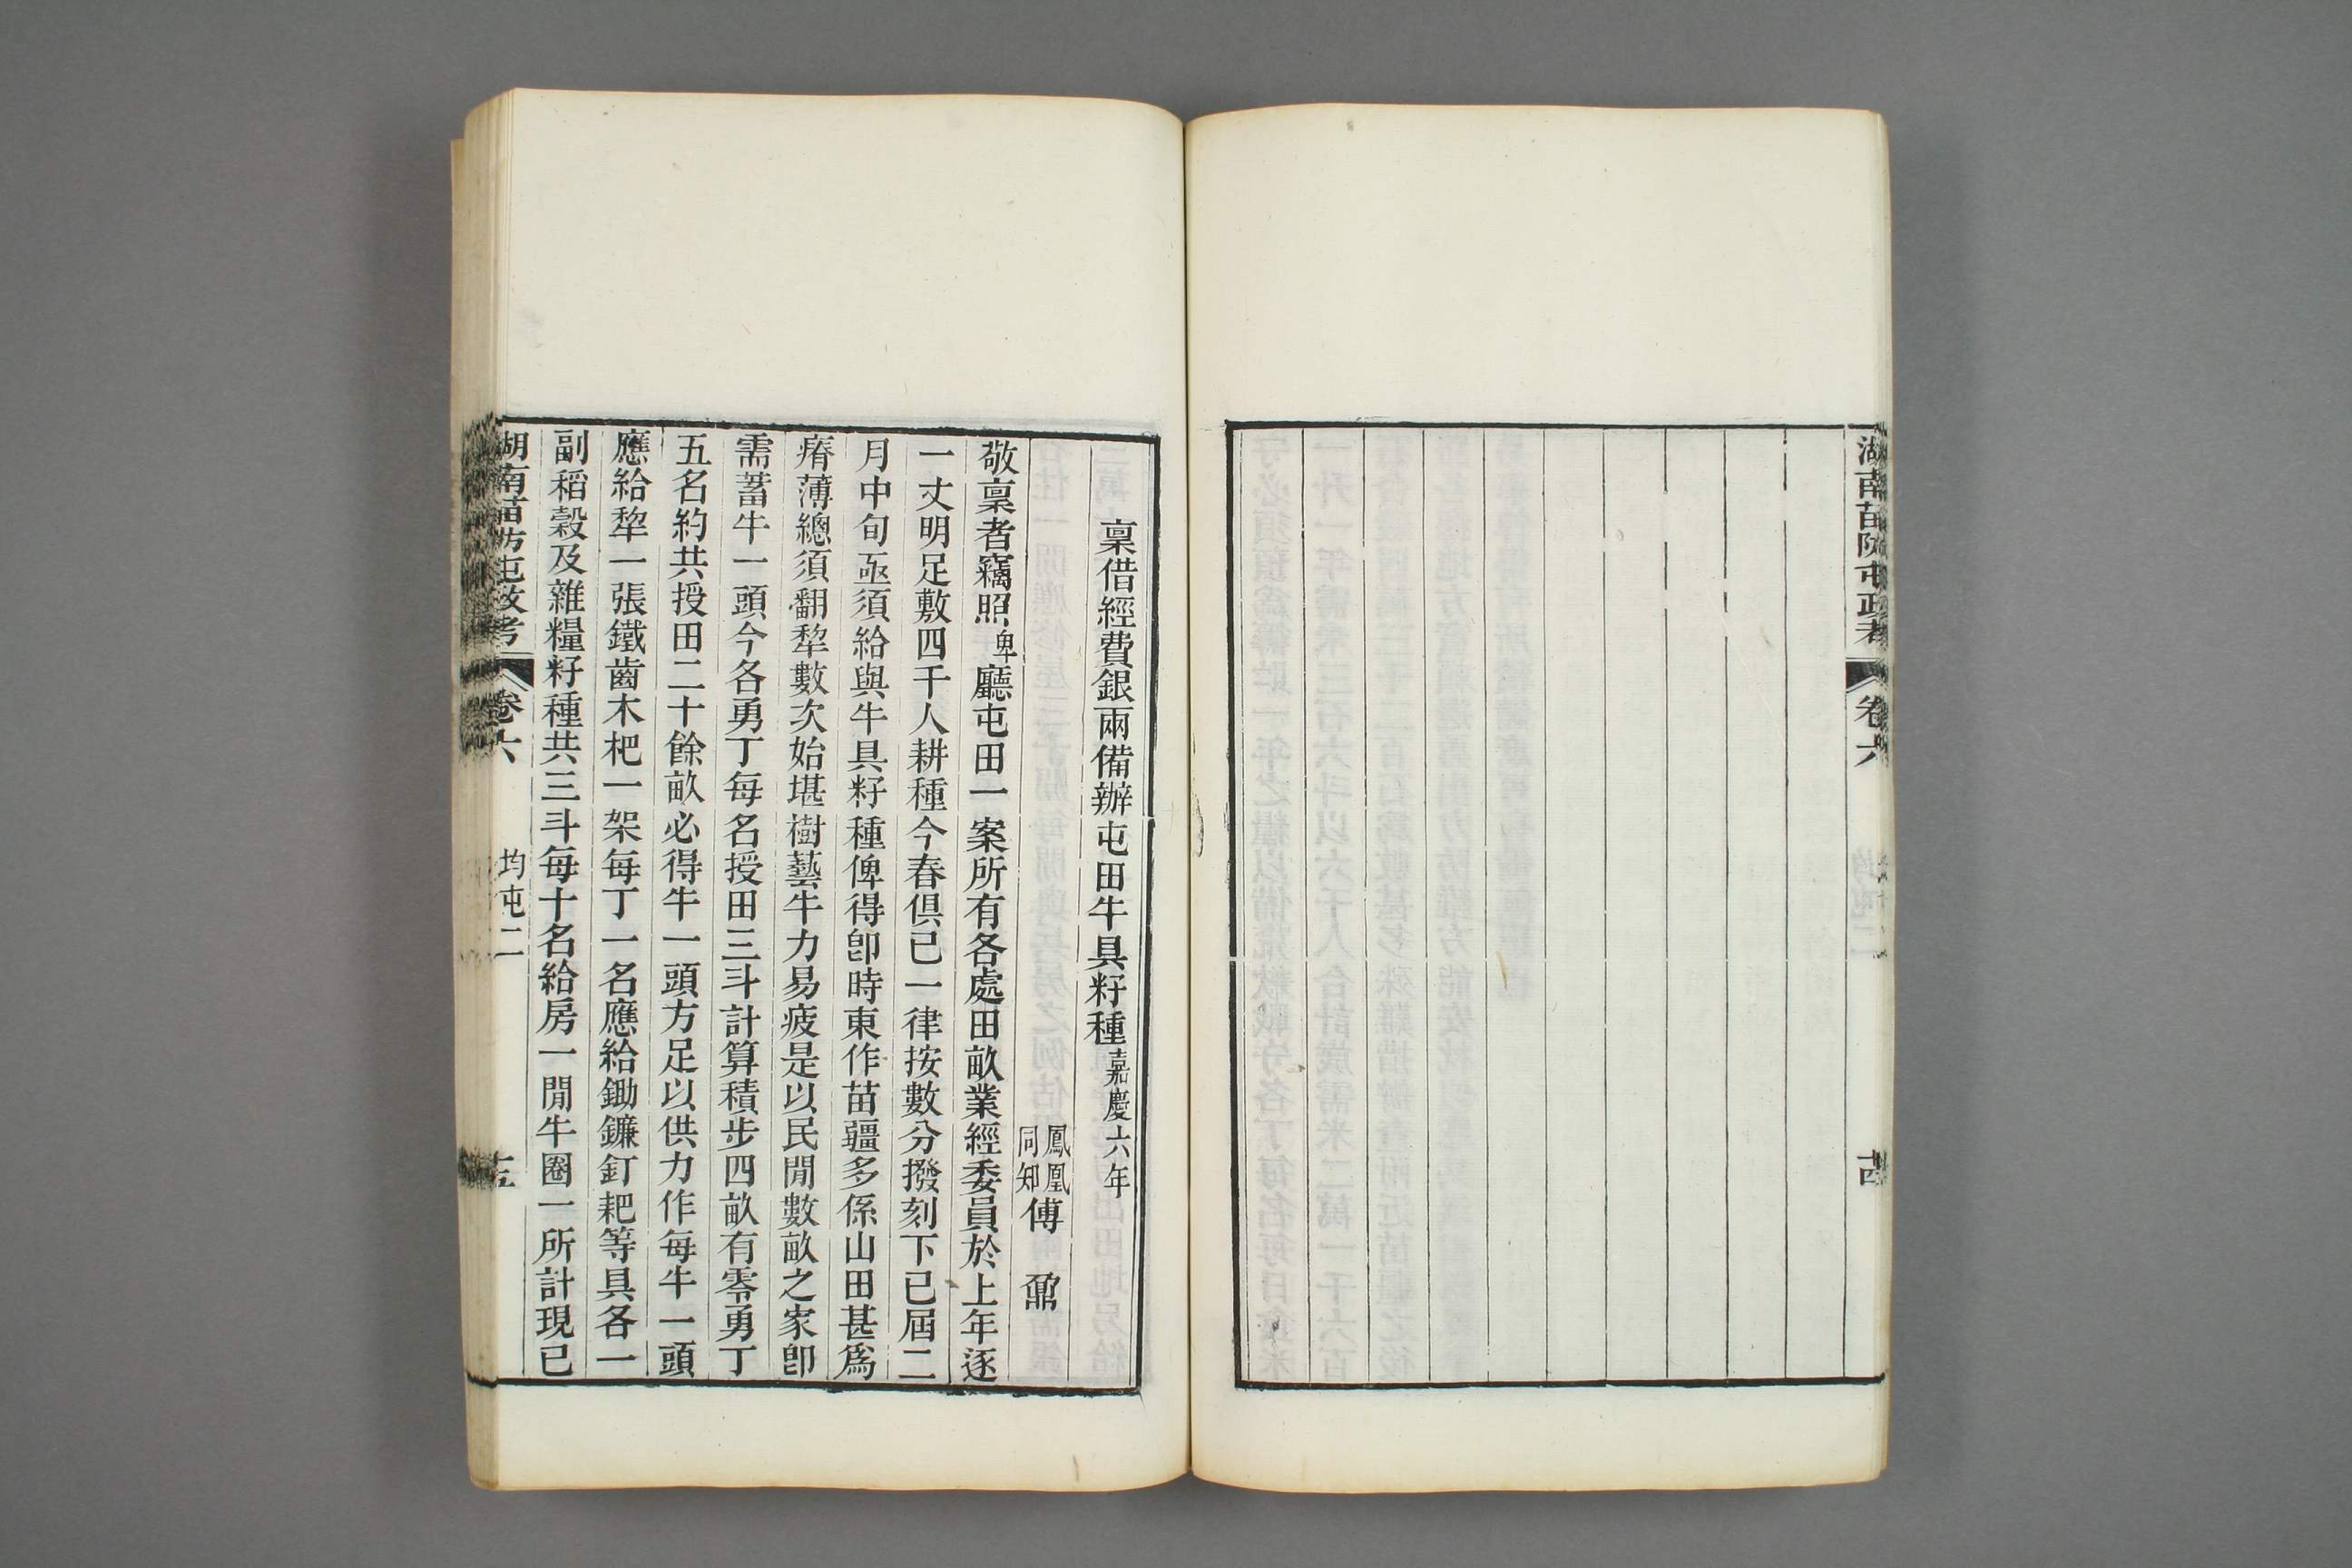 湖南苗防屯政考
卷六
十四
稟借經費銀兩備辦屯田牛具籽種嘉慶六年
鳳凰同知傅鼐
敬稟者竊照卑廳屯田一案所有各處田畝業經委員於上年逐
一丈明足敷四千人耕種今春俱已一律按數分撥刻下已屆二
月中旬亟須給與牛具籽種俾得卽時東作苗疆多係山田甚爲
瘠薄總須翻犂數次始堪樹藝牛力易疲是以民閒數畝之家卽
需蓄牛一頭今各勇丁每名授田三斗計算積步四畝有零勇丁
五名約共授田二十餘畝必得牛一頭方足以供力作每牛一頭
應給犂一張鐵齒木杷一架每丁一名應給鋤鐮釘耙等具各一
副稻穀及雜糧籽種共三斗每十名給房一閒牛圈一所計現已
湖南苗防屯政考
卷六
均屯二
十五